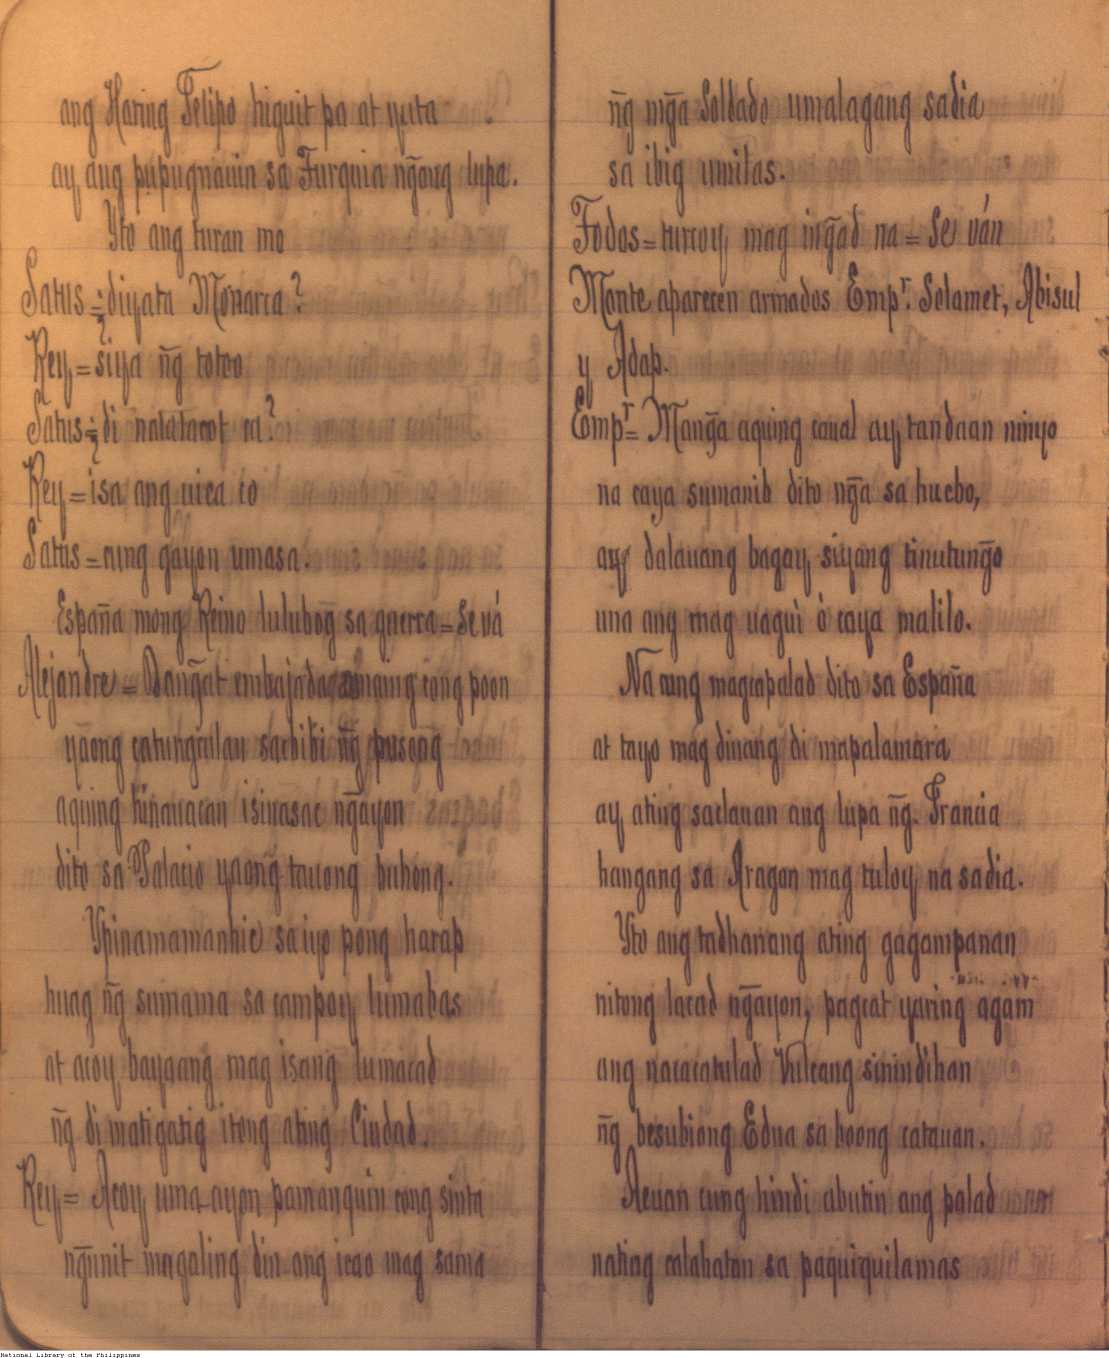 ang Haring Felipo higuit pa at
ay ang pupugnauin sa Turquia ng̃oug lupa.
Yto ang turan mo
Satus = diyata Monarca?
Rey = siya n͠g totoo
Satus = di natatacot ca?
Rey = isa ang uica co
Satus = cung gayon umasa.
España mong Reino lulubog̃ sa guerra = Se vá
Alejandre = Dang̃at cong poon
yaong sacbibi n͠g pusong
aquing isinasac ng̃ayon
dito sa Palacio yaong̃ tauong buhong.
Ypinamamanhic sa iyo pong harap
huag n͠g sumama sa campoy lumabas
at acoy bayaang mag isang̃ lumacad
n͠g di matigatig itong ating Ciudad.
Rey = Acoy uma-ayon pamanquin cong sinta
ng̃unit magaling din ang icao mag sama
n͠g mg̃a Soldado umalagang sadia
sa ibig umitas.
Todos = turcoy mag ing̃ad na = Se ván
Monte aparecen armados Emp.r Solamet, Abisul
y Adap.
Emp.r = Mang̃a aquing caual ay tandaan ninyo
na caya sumanib dito ng̃a sa huebo,
ay dalauang bagay siyang tinutung̃o
una ang mag uagui ò caya malilo.
Na cung magcapalad dito sa España
at tayo mag dinang di mapalamara
ay ating saclauan ang lupa n͠g Francia
hangang sa Aragon mag tuloy na sadia.
Yto ang tadhanang ating gagampanan
nitong lacad ng̃ayon, pagcat yaring agam
ang nacacatulad Vulcang sinindihan
n͠g besubiong Edna sa boong catauan.
Acuan cung hindi abutin ang palad
natiag calahatan sa paquiquilamas
National Library of the Philippines